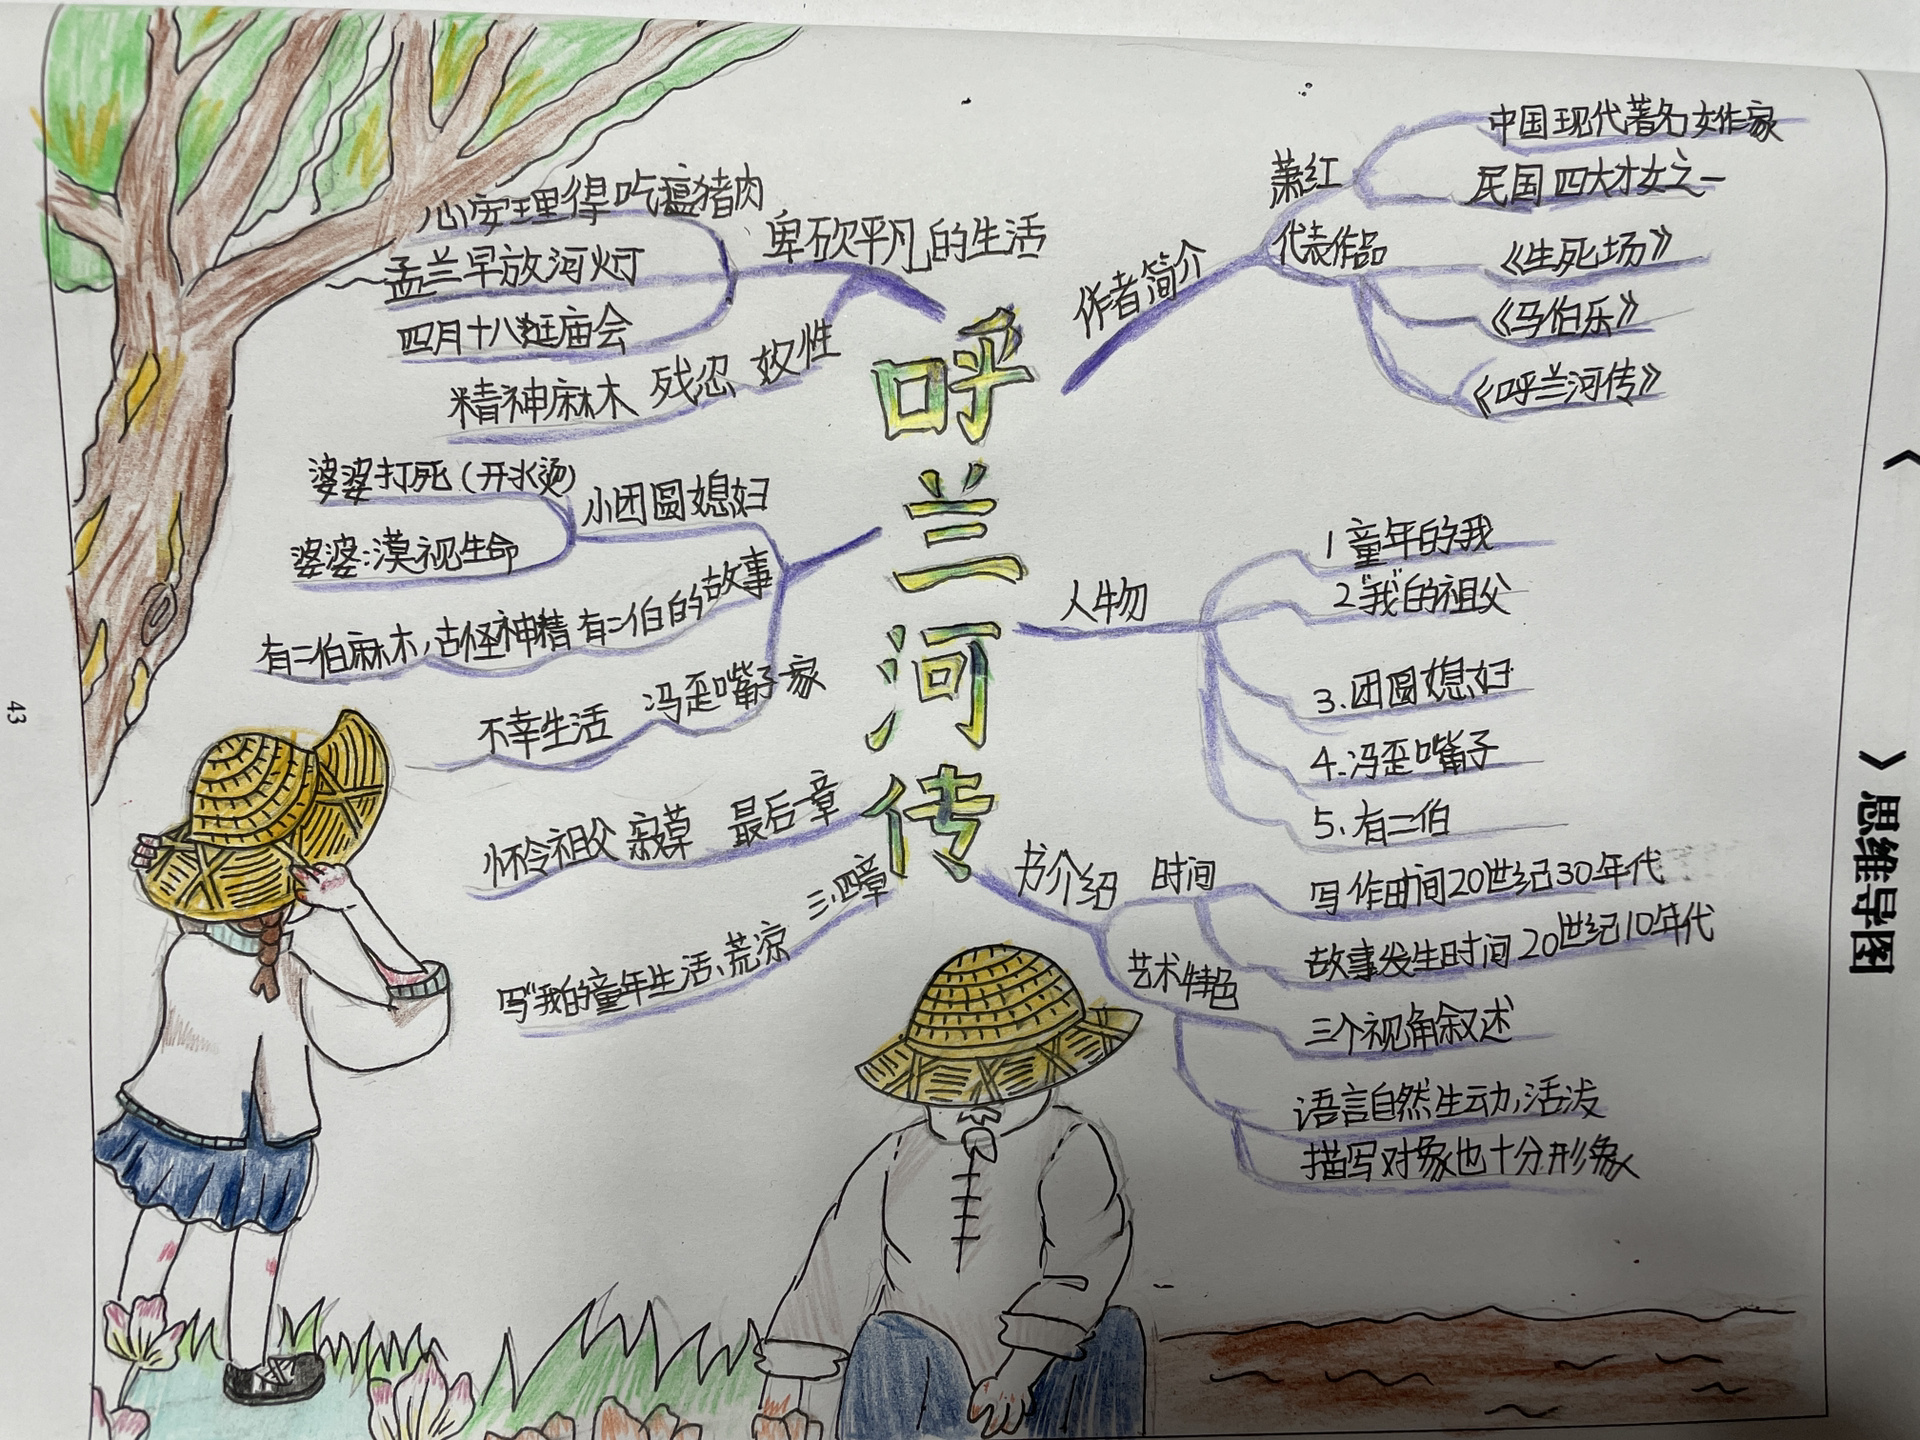 呼兰河传
作者简介
萧红
中国现代著名女作家
民国四大才女之一
代表作品
《生死场》
《马伯乐》
《呼兰河传》
人物
1 童年的我
2 "我"的祖父
3. 团圆媳妇
4. 冯歪嘴子
5. 有二伯
书介绍
时间
写作时间20世纪30年代
故事发生时间20世纪10年代
艺术特色
三个视角叙述
语言自然生动,活泼
描写对象也十分形象
卑砍平凡的生活
心安理得吃瘟猪肉
孟兰早放河灯
四月十八逛庙会
精神麻木 残忍 奴性
小团圆媳妇
婆婆打死(开水烫)
婆婆:漠视生命
有二伯的故事
有二伯麻木,古怪神精
冯歪嘴子一家
不幸生活
最后一章
怀念祖父 寂莫
三.四章
写"我的童年生活、荒凉
43
《 》思维导图